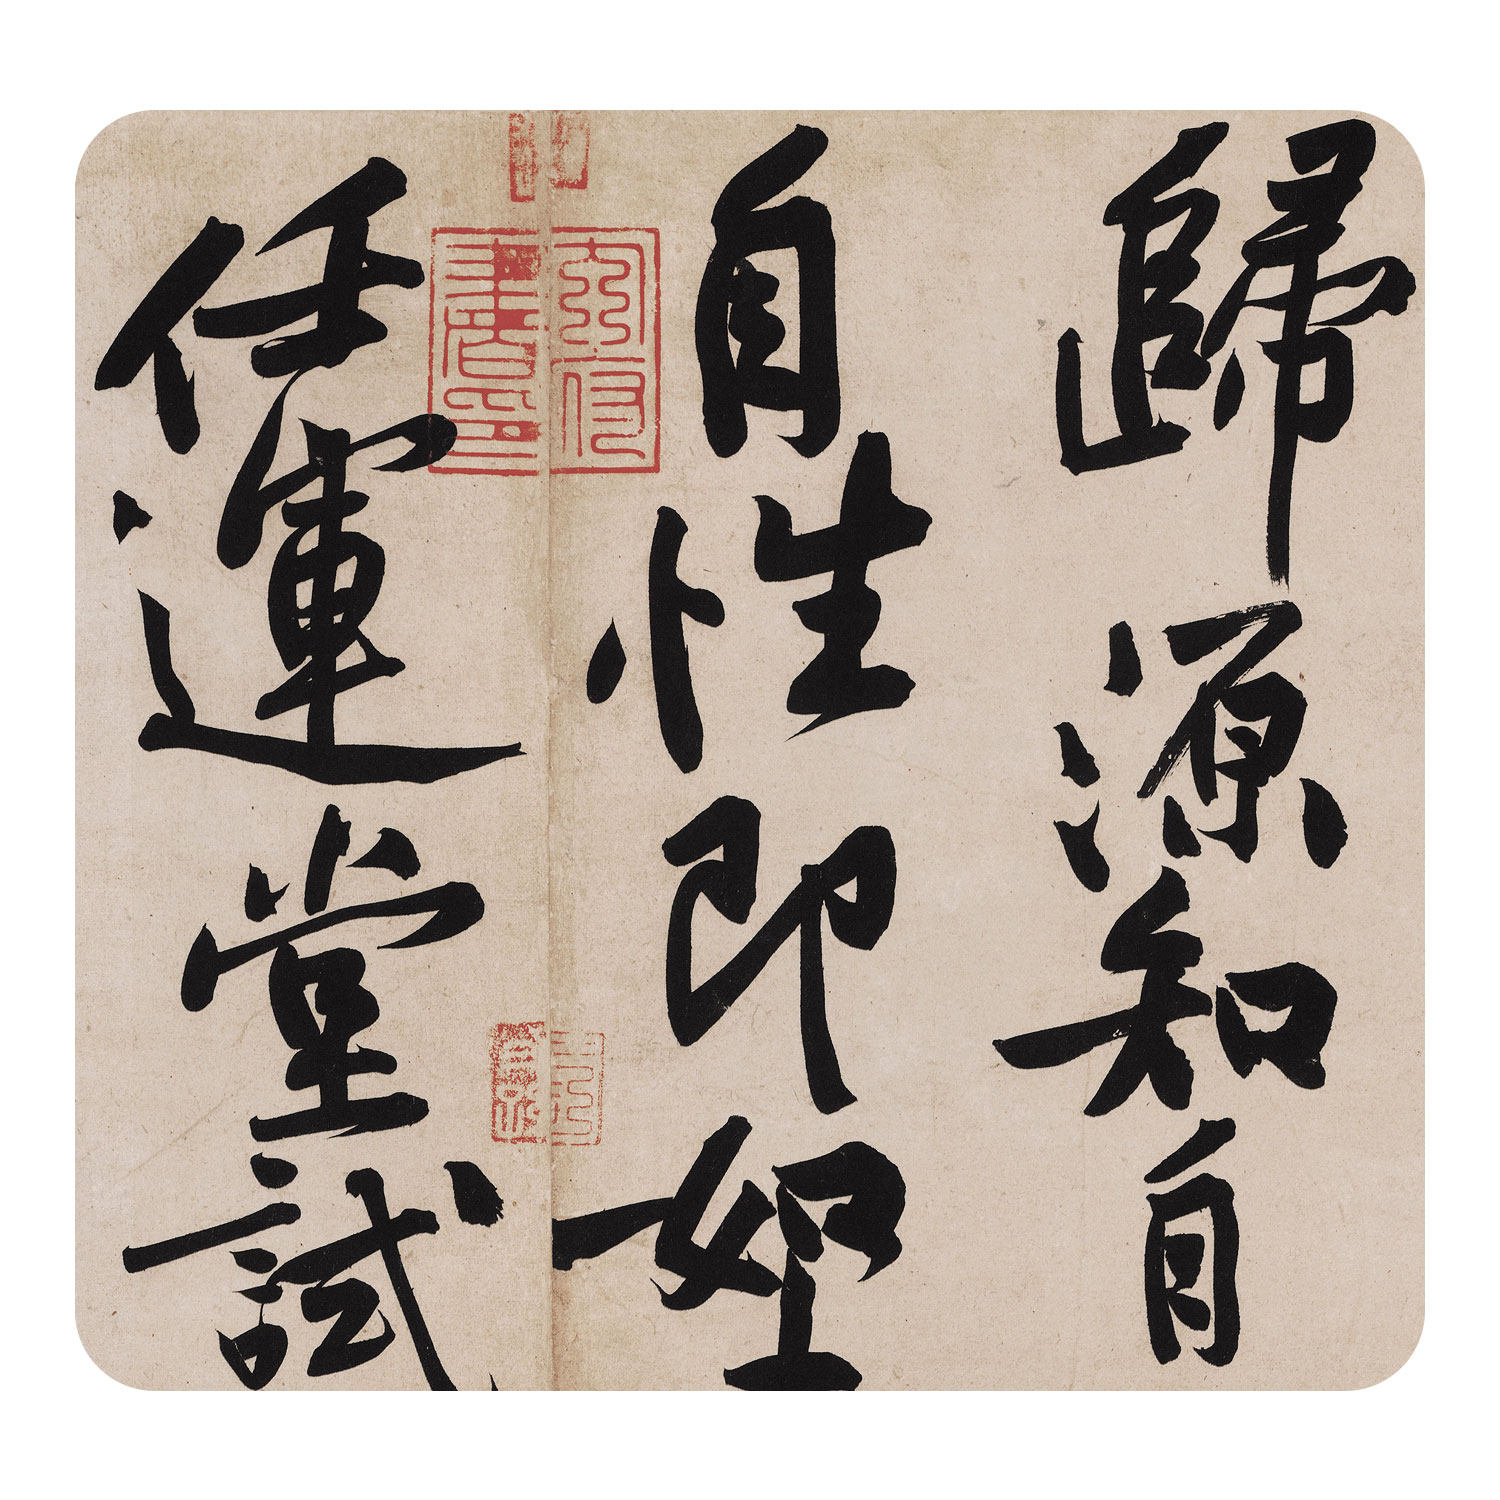 歸源知自
自性即如
任運堂試